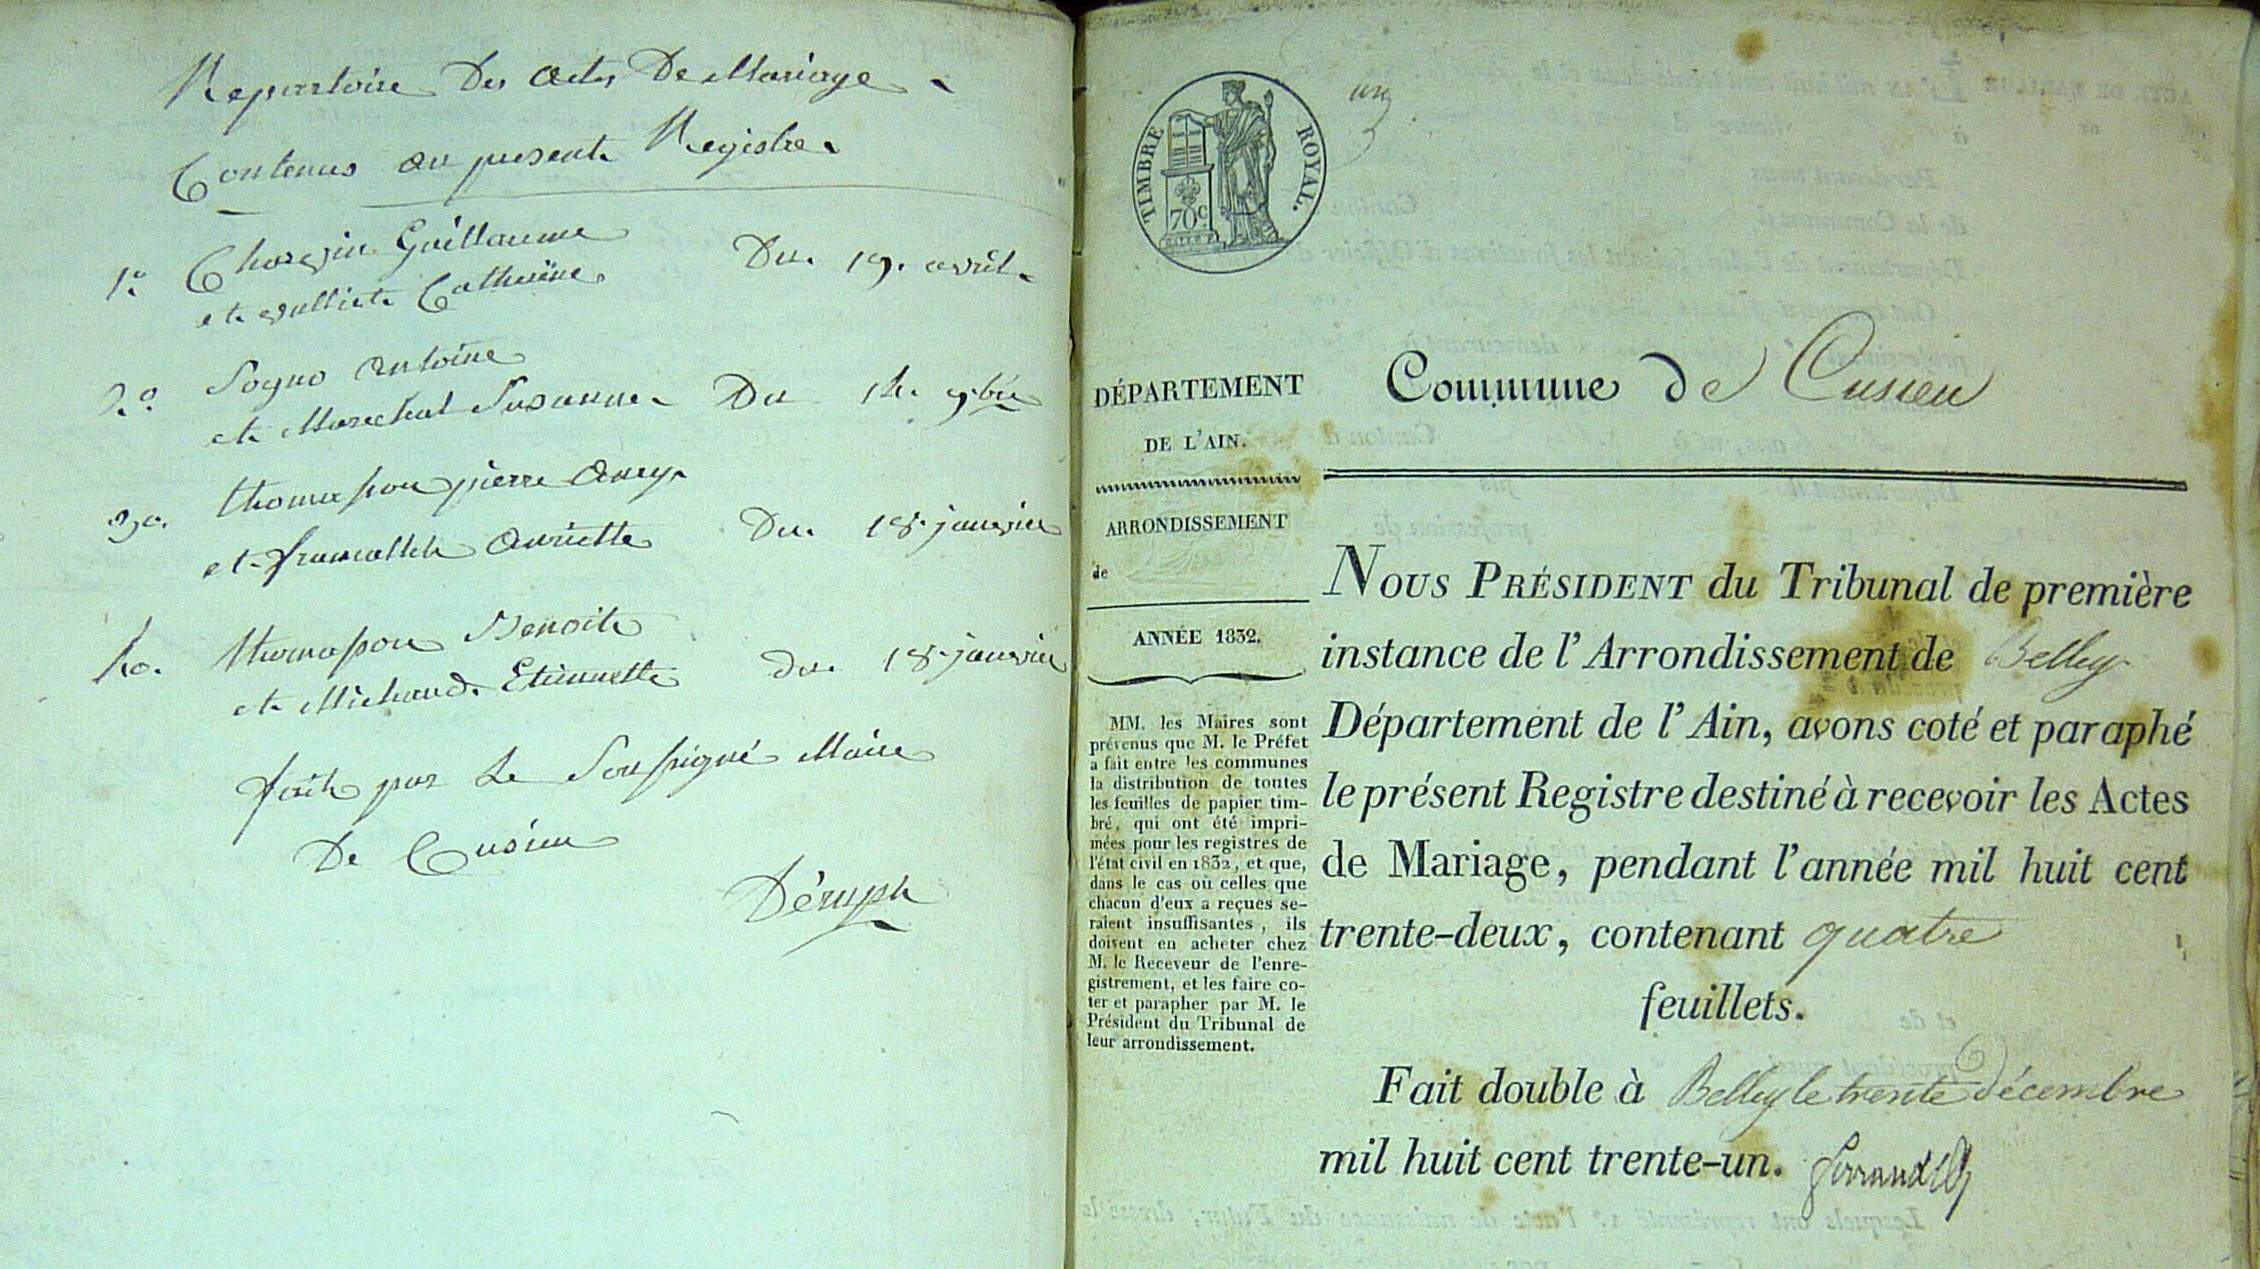 Repertoire Des actes De Mariage
Contenus au present Registre.
1º Charvin Guillaume
et Catherine Du. 19. avril.
2º. Sogno antoine
et Marechal Susanne. Du 14. 9bre
3º. thomasson pierre
et Du. 18 janvier
4º. thomasson Benoit
et Michaud. Etiennette du. 18 janvier
fait par Le Soussigné Maire
De Cusieu
Déruph
TIMBRE ROYAL.
70c
DÉPARTEMENT
DE L'AIN.
ARRONDISSEMENT
de
ANNÉE 1832.
MM. les Maires sont
prévenus que M. le Préfet
a fait entre les communes
la distribution de toutes
les feuilles de papier tim-
bré, qui ont été impri-
mées pour les registres de
l'état civil en 1832, et que,
dans le cas où celles que
chacun d'eux a reçues se-
raient insuffisantes, ils
doivent en acheter chez
M. le Receveur de l'enre-
gistrement, et les faire co-
ter et parapher par M. le
Président du Tribunal de
leur arrondissement.
Commune de Cusieu
NOUS PRÉSIDENT du Tribunal de première
instance de l'Arrondissement de Belley
Département de l'Ain, avons coté et paraphé
le présent Registre destiné à recevoir les Actes
de Mariage, pendant l'année mil huit cent
trente-deux, contenant quatre
feuillets.
Fait double à Belley le trente décembre
mil huit cent trente-un.